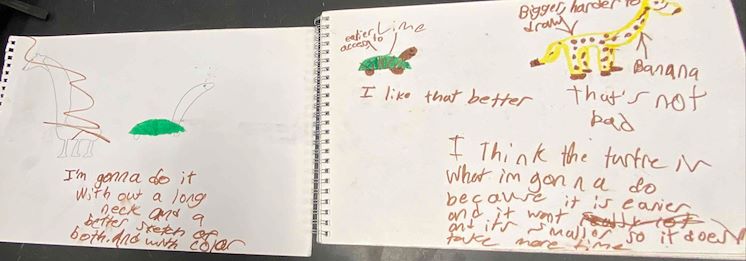 I'm gonna do it
with out a long
neck and a
better sketch of
both. And with color
easier Lime
access to
I like that better
Bigger, harder to
draw
Banana
That's not
bad
I Think the turtle is
what im gonna do
because it is easier
and it wont
and it's smaller so it does
take more time